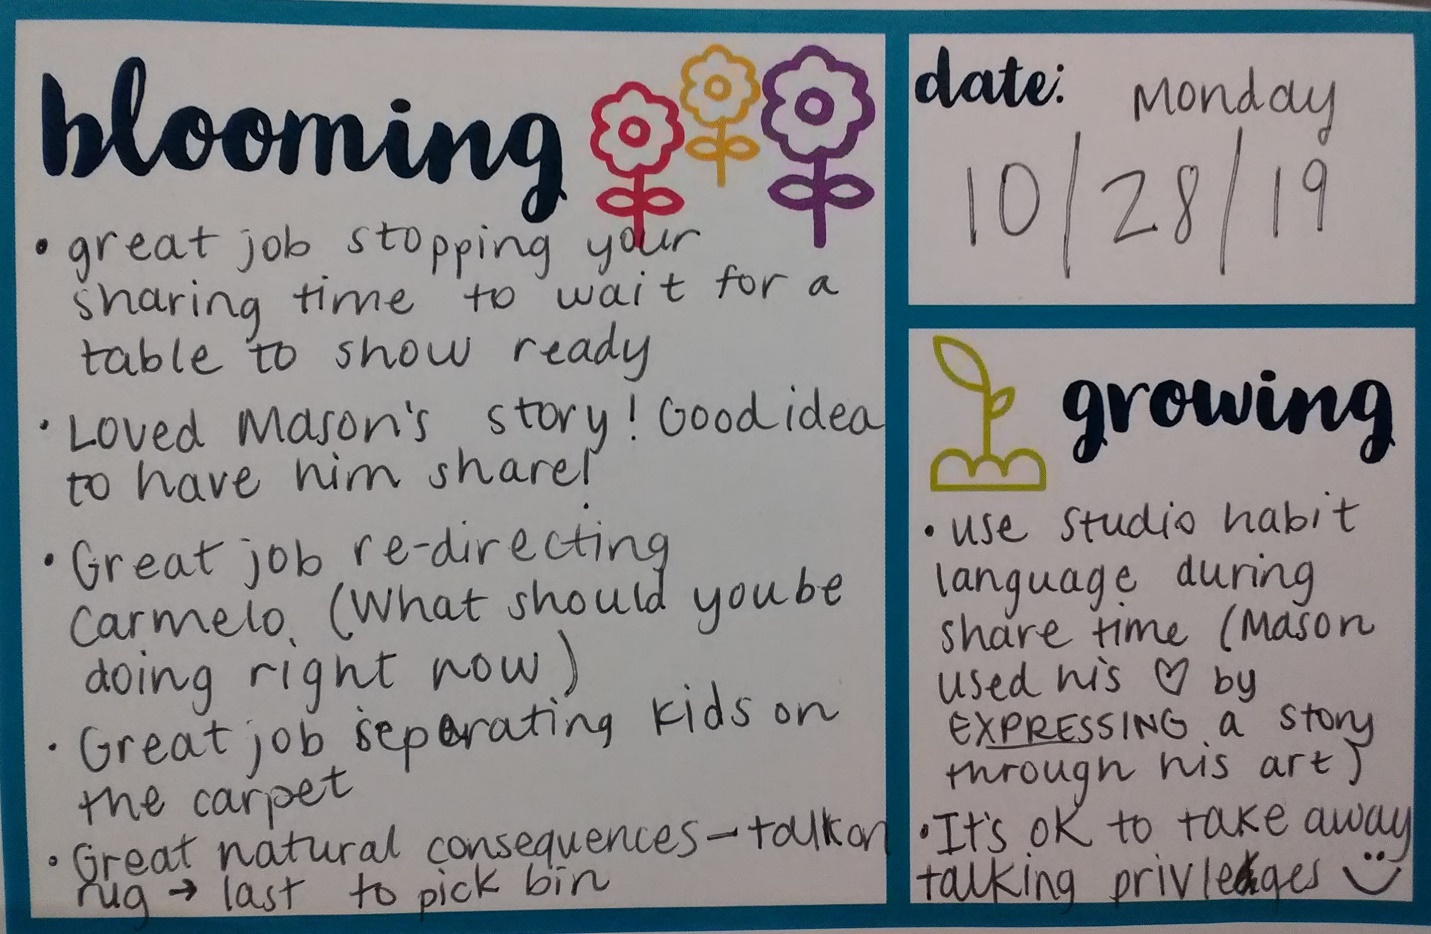 blooming
• great job stopping your
sharing time to wait for a
table to show ready
• Loved Mason's story! Good idea
to have him share!
• Great job re-directing
Carmelo. (What should you be
doing right now)
• Great job seperating kids on
the carpet
• Great natural consequences – talk on
rug → last to pick bin
date: Monday
10/28/19
growing
• use studio habit
language during
share time (Mason
used his ♡ by
EXPRESSING a story
through his art)
• It's ok to take away
talking privleges